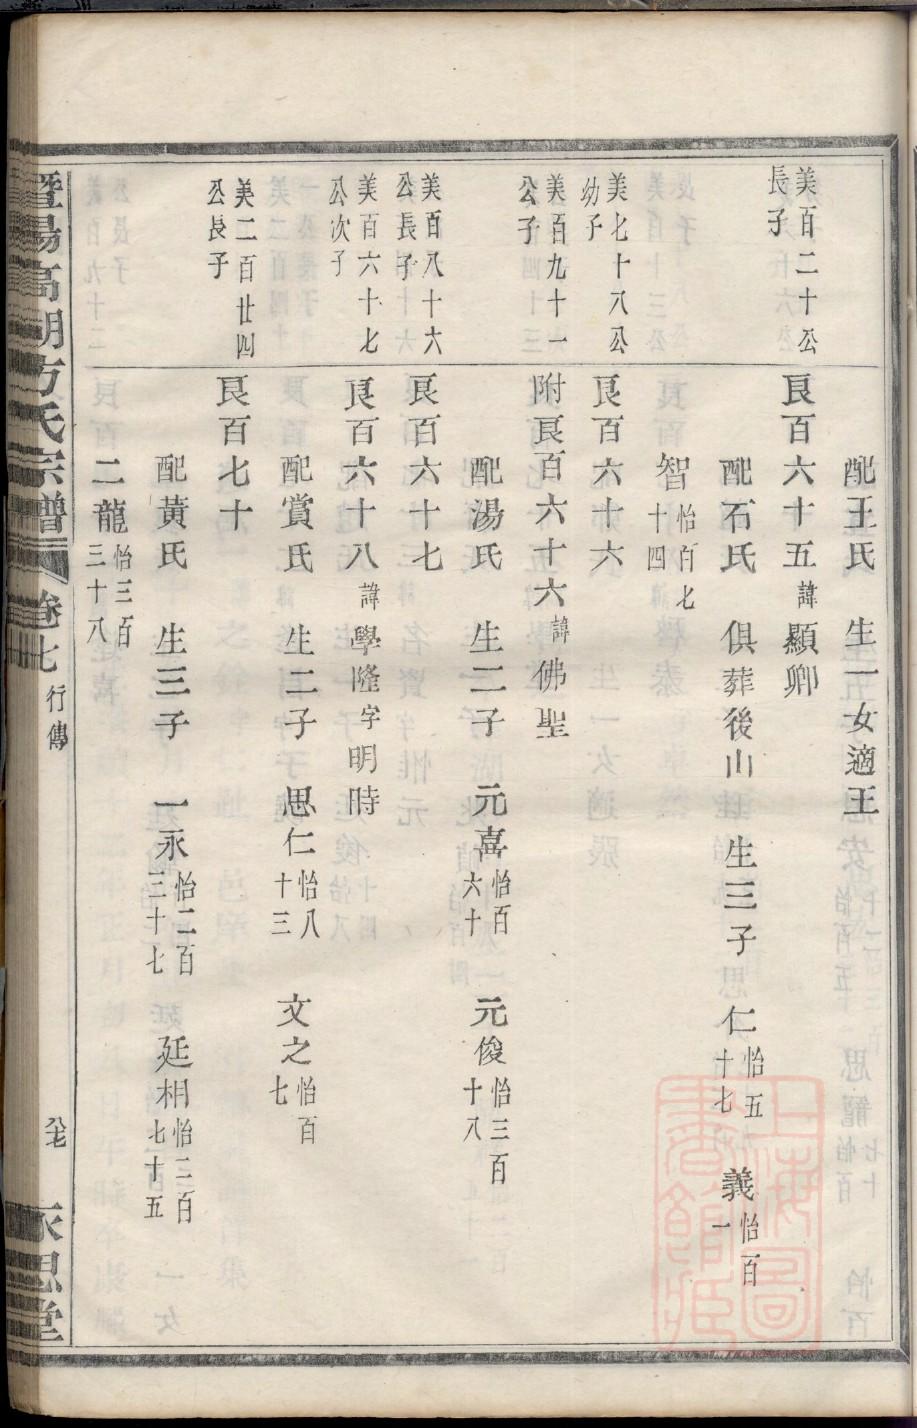 配王氏 生一女適王
美百二十公長子
艮百六十五諱顯卿
配石氏 俱葬後山 生三子 仁怡五十七 義怡百一
智怡百七十四
美七十八公幼子
艮百六十六
美百九十一公子
附艮百六十六諱佛聖
配湯氏 生二子 元喜怡百六十 元俊怡三百十八
美百八十六公長子
艮百六十七
美百六十七公次子
艮百六十八諱學隆字明時
配賞氏 生二子 思仁怡八十三 文之怡百七
美二百廿四公長子
艮百七十
配黃氏 生三子 一永怡二百三十七 廷相怡二百七十五
二龍怡三百三十八
暨陽高湖方氏宗譜 卷七 行傳 永思堂
上海圖書館藏